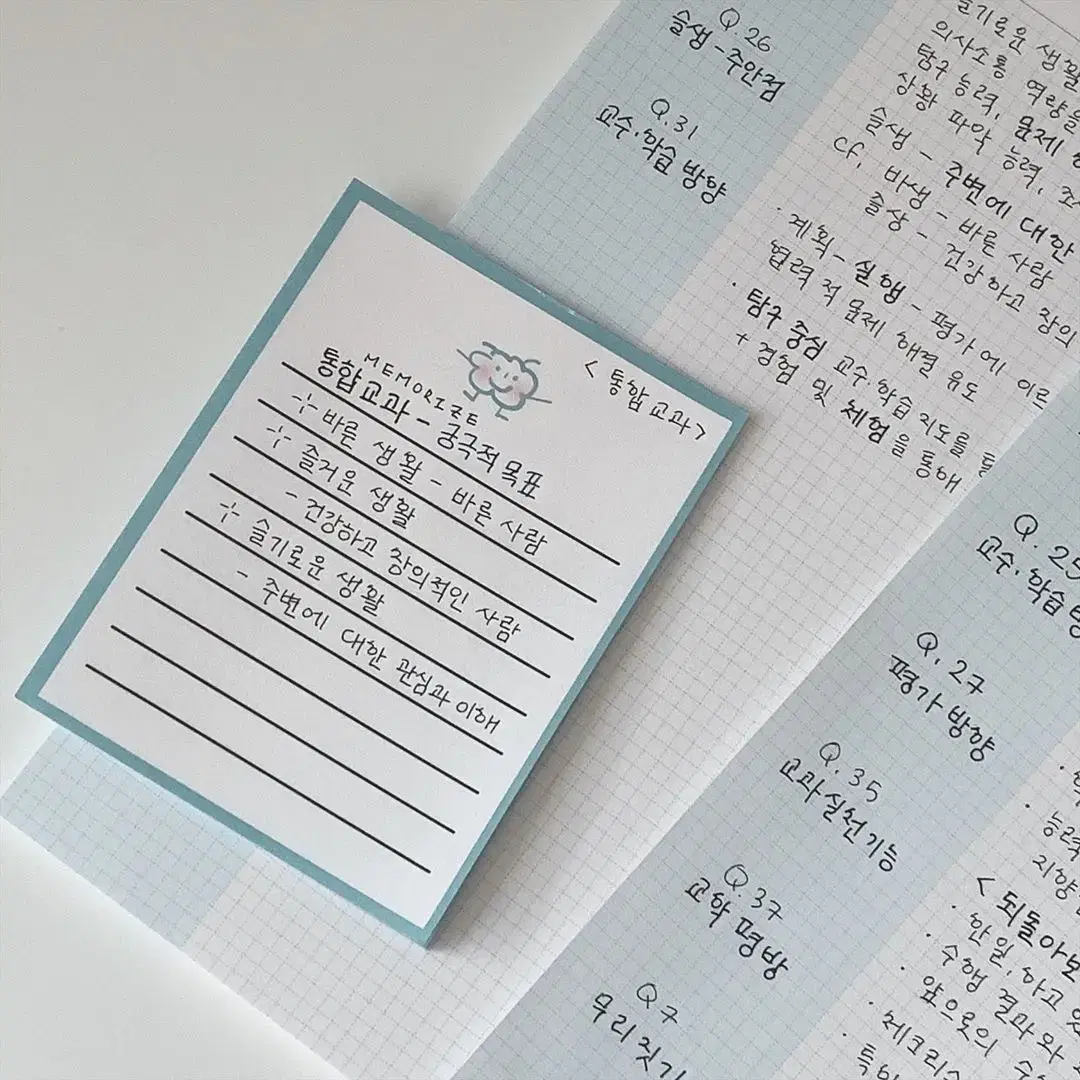 < 통합교과 >
MEMORIZE
통합교과 - 궁극적 목표
바른 생활 - 바른 사람
즐거운 생활
- 건강하고 창의적인 사람
슬기로운 생활
- 주변에 대한 관심과 이해
Q.26
슬생 - 주안점
Q.31
교수·학습 방향
슬기로운 생활
의사소통 역량을
탐구 능력, 문제
상황 파악 능력,
슬생 - 주변에 대한
cf, 바생 - 바른 사람
즐생 - 건강하고 창의
· 계획 - 실행 - 평가에 이르
협력적 문제 해결 유도
· 탐구 중심 교수·학습 지도를
+ 경험 및 체험을 통해
Q.25
교수·학습
Q.27
평가 방향
Q.35
교과 실천 기능
Q.37
교학 평방
Q7
무리 짓기
능력
지향
< 되돌아보
· 한 일, 하고
· 수행 결과와
앞으로의
· 체크리스